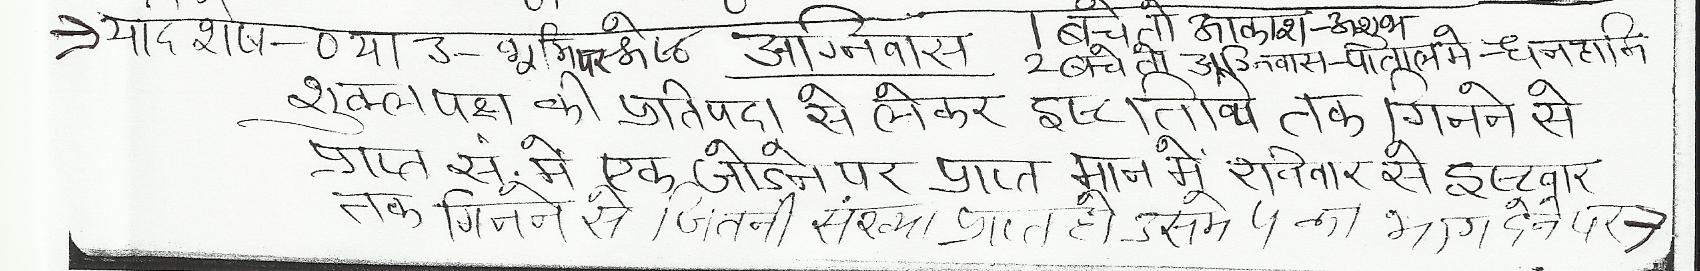 → याद शेष - 0 या 3 - भूमि पर श्रेष्ठ अग्निवास 1 बचे तो आकाश - अशुभ
2 बचे तो अग्निवास - पाताल मे - धनहानि
शुक्लपक्ष की प्रतिपदा से लेकर इष्ट तिथि तक गिनने से
प्राप्त सं. में एक जोडने पर प्राप्त मान में रविवार से इष्टवार
तक गिनने से जितनी संख्या प्राप्त हो उसमे 4 का भाग देने पर →